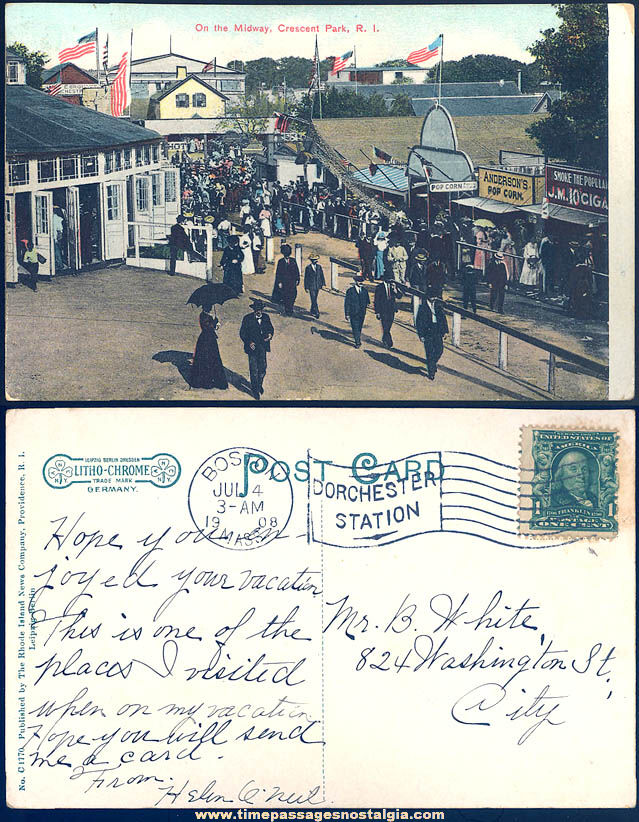 On the Midway, Crescent Park, R. I.
HOT
POP CORN
ANDERSON'S
POP CORN.
SMOKE THE POPULAR
J.M. 10¢ CIGA
LEIPZIG BERLIN DRESDEN
LITHO-CHROME
TRADE MARK
GERMANY.
POST CARD
BOSTON
JUL 4
3-AM
1908
MASS.
DORCHESTER
STATION
UNITED STATES OF
AMERICA
1 FRANKLIN 1
POSTAGE
ONE CENT
No. C1770. Published by The Rhode Island News Company, Providence, R. I.
Leipzig-Berlin
Hope you en-
joyed your vacation
This is one of the
places I visited
when on my vacation
Hope you will send
me a card.
From.
Helen O'Neil.
Mr. B. White,
824 Washington St.
City
www.timepassagesnostalgia.com